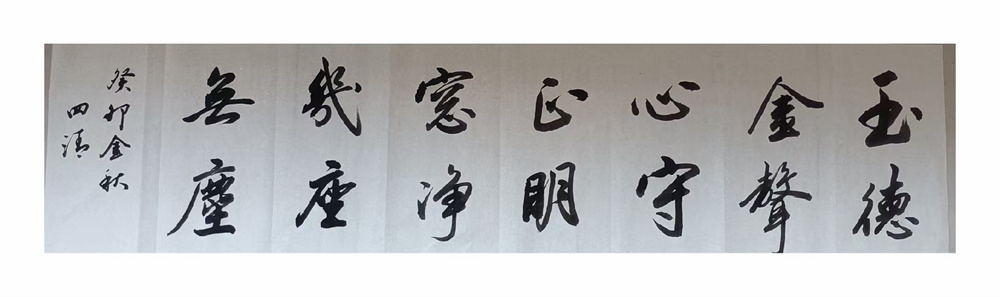 玉德
金聲
心守
正明
窓净
几座
無塵
癸卯金秋
四清